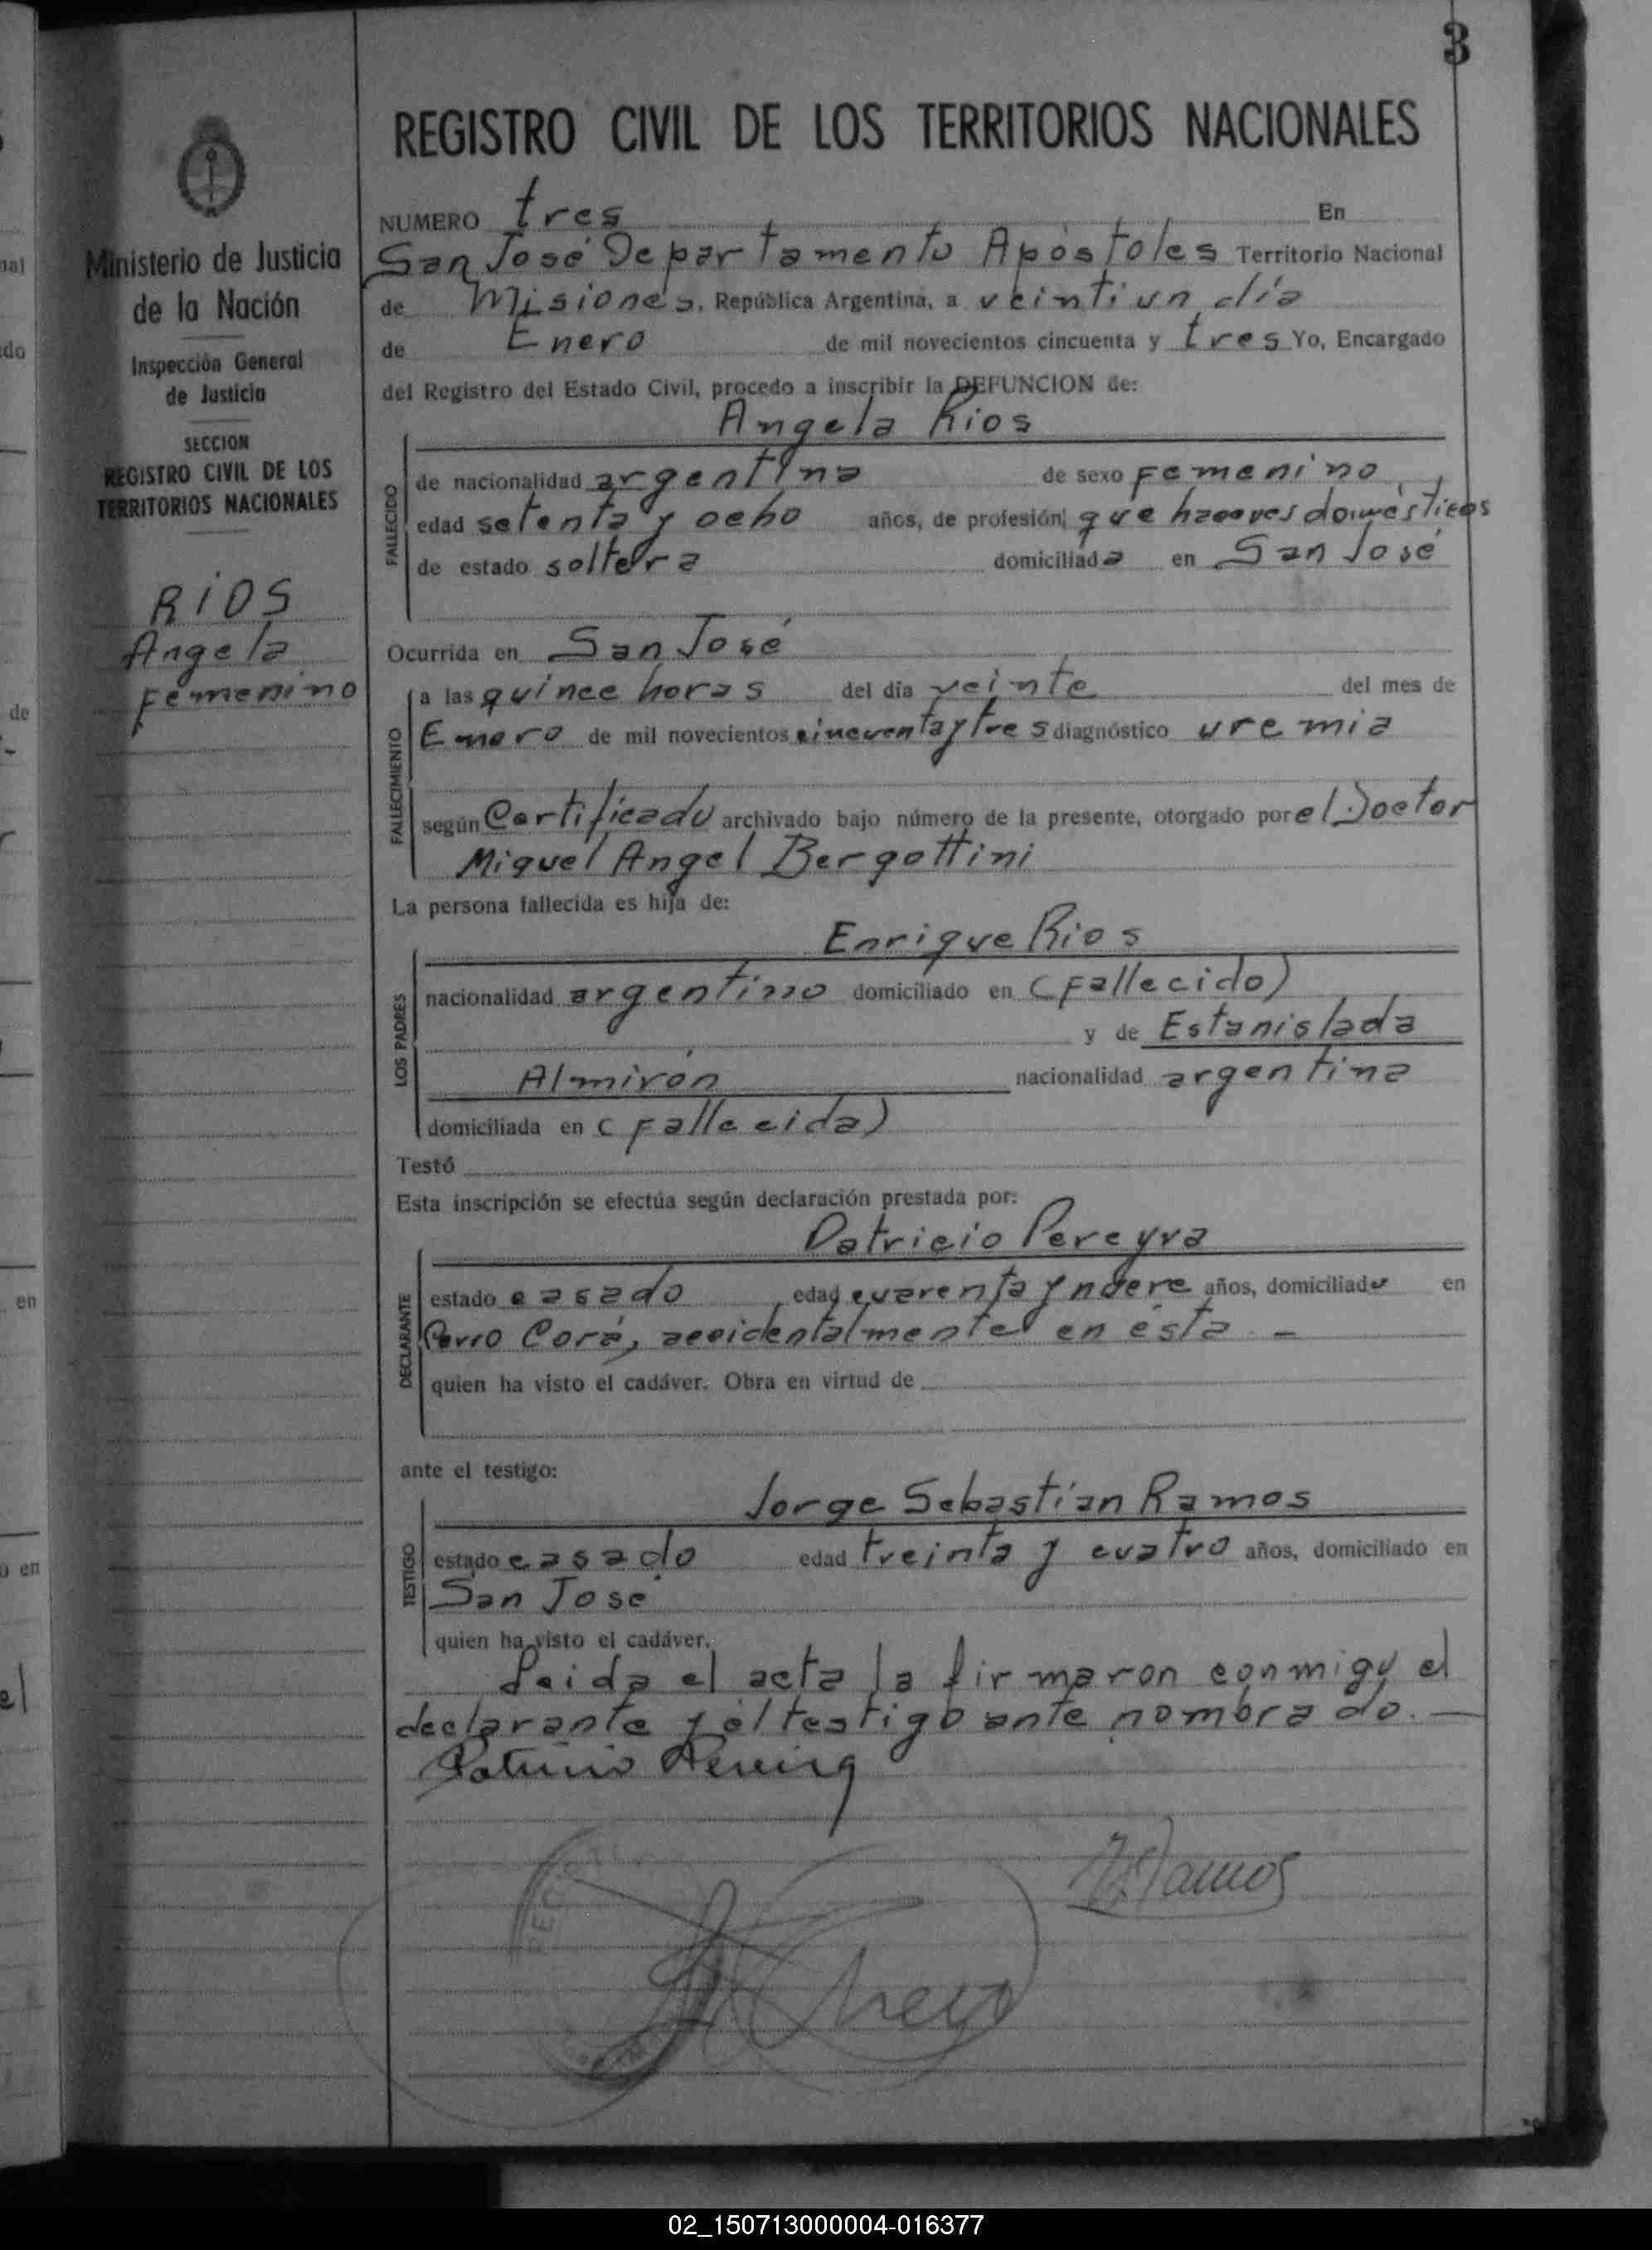 3
REGISTRO CIVIL DE LOS TERRITORIOS NACIONALES
Ministerio de Justicia
de la Nación
Inspección General
de Justicia
SECCION
REGISTRO CIVIL DE LOS
TERRITORIOS NACIONALES
RIOS
Angela
Femenino
NUMERO tres En
San José Departamento Apóstoles Territorio Nacional
de Misiones, República Argentina, a veintiun día
de Enero de mil novecientos cincuenta y tres Yo, Encargado
del Registro del Estado Civil, procedo a inscribir la DEFUNCION de:
Angela Rios
FALLECIDO
de nacionalidad argentina de sexo Femenino
edad setenta y ocho años, de profesión que haceres domésticos
de estado soltera domiciliada en San José
Ocurrida en San José
FALLECIMIENTO
a las quince horas del día veinte del mes de
Enero de mil novecientos cincuenta y tres diagnóstico uremia
según Certificado archivado bajo número de la presente, otorgado por el Doctor
Miguel Angel Bergottini
La persona fallecida es hija de:
LOS PADRES
Enrique Rios
nacionalidad argentino domiciliado en (Fallecido)
y de Estanislada
Almirón nacionalidad argentina
domiciliada en (Fallecida)
Testó
Esta inscripción se efectúa según declaración prestada por:
DECLARANTE
Patricio Pereyra
estado casado edad cuarenta y nueve años, domiciliado en
Cerro Corá, accidentalmente en ésta -
quien ha visto el cadáver. Obra en virtud de
ante el testigo:
TESTIGO
Jorge Sebastián Ramos
estado casado edad treinta y cuatro años, domiciliado en
San José
quien ha visto el cadáver.
Leida el acta la firmaron conmigo el
declarante y el testigo ante nombrado. —
Ramos
02_150713000004-016377